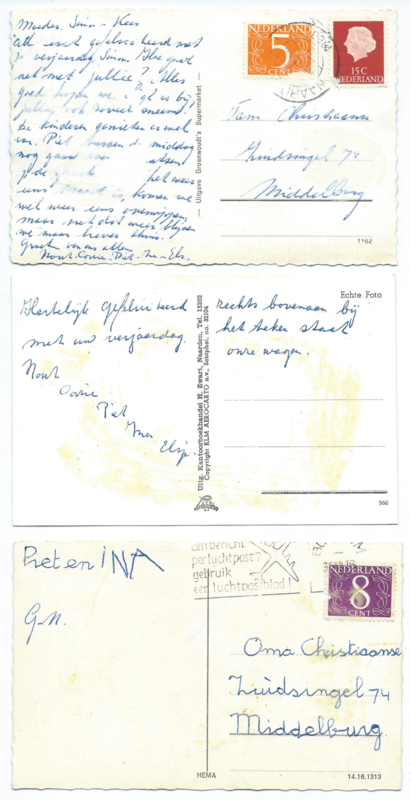 Moeder, Siem - Kees
Allereerst gefeliciteerd met
je verjaardag Siem. Hoe gaat
het met jullie? Alles
goed hopen we
De kinderen genieten er wel
van. Piet
nog gaan
weer
komen we
wel weer eens overwippen,
maar met dat weer blijven
we maar liever thuis.
Groeten van ons allen
Nout-Corrie-Piet-Ina-Els.
— Uitgave Groenwoudt's Supermarket —
NEDERLAND
5
CENT
15C
NEDERLAND
Fam Christiaanse
Zuidsingel 74
Middelburg
1162
Hartelijk gefeliciteerd
met uw verjaardag.
Nout
Corrie
Piet
Ina
Elsje
Uitg. Kantoorboekhandel H. Zwart, Naarden, Tel. 15202
Copyright KLM AEROCARTO n.v., Schiphol, no. 21104
Echte Foto
rechts bovenaan bij
het teken staat
onze wagen.
566
Piet en INA
G.N.
Een bericht
per luchtpost?
gebruik
een luchtpostblad!
NEDERLAND
8
CENT
Oma Christiaanse
Zuidsingel 74
Middelburg
HEMA
14.16.1313